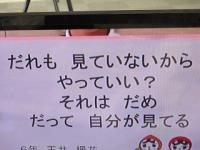 だれも 見ていないから
やっていい？
それは だめ
だって 自分が見てる
６年